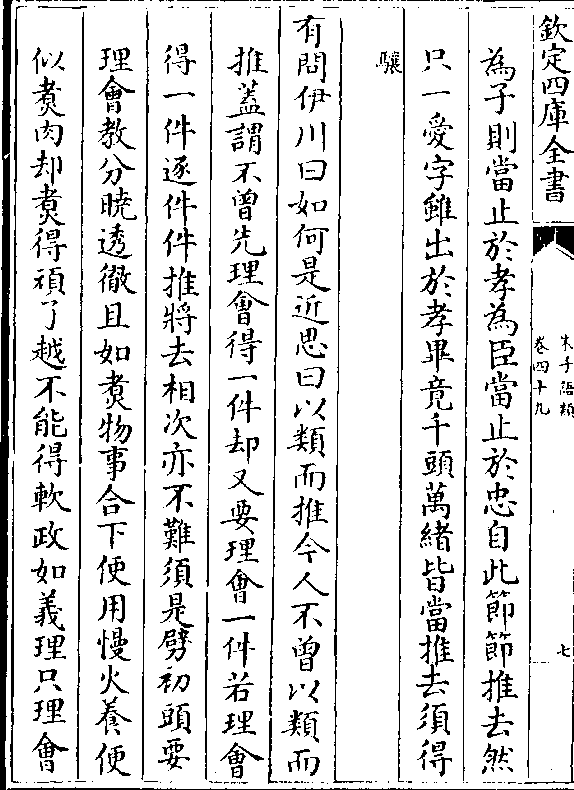 欽定四庫全書
朱子語類
卷四十九
七
為子則當止於孝為臣當止於忠自此節節推去然
只一愛字雖出於孝畢竟千頭萬緒皆當推去須得
驤
有問伊川曰如何是近思曰以類而推今人不曾以類而
推蓋謂不曾先理會得一件却又要理會一件若理會
得一件逐件件推將去相次亦不難須是劈初頭要
理會教分曉透徹且如煮物事合下便用慢火養便
似煮肉却煮得頑了越不能得軟政如義理只理會